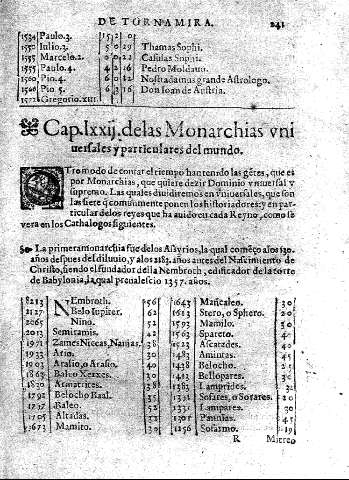 DE TORNAMIRA. 241
1534 Paulo.3. 15 2 0
1550 Iulio.3. 5 0 29 Thamas Sophi.
1555 Marcelo.2. 0 0 22
1555 Paulo.4. 4 2 16 Pedro Moldauo.
1560 Pio.4. Nostradamus grande Astrologo.
1566 Pio 5. 6 3 16 Don Ioan de Austria.
1572 Gregorio.XIII.
Cap.lxxij. delas Monarchias vni
uersales y particulares del mundo.
OTro modo de contar el tiempo han tenido las gētes, que es
por Monarchias, que quiere dezir Dominio vniuersal y
supremo. Las quales diuidiremos en vniuersales, que son
las siete q comūnmente ponen los historiadores: y en par
ticular delos reyes que ha auido en cada Reyno, como se
vera en los Cathalogos siguientes.
La primera monarchia fue delos Assyrios, la qual comēço alos 130.
años despues del diluuio, y alos 2183. años antes del Nascimiento de
Christo, siendo el fundador della Nembroth, edificador de la torre
de Babylonia, la qual preualescio 1357. años.
Nembroth. 56 1643 Mancaleo. 30
2127 Belo Iupiter. 62 1613 Stero, o Sphero. 20
2065 Nino. 52 1593 Mamilo. 30
2013 Semiramis. 42 1563 Spareto. 40
1971 Zames Niceas, Nanias. 38 1523 Ascatades. 40
1933 Ario. 30 1483 Amintas. 45
1903 Aralio. 40 1438 Belocho. 25
Baleo Xerxes. 30 1413 Bellopares. 30
1830 Armatrites. 38 1383 Lamprides. 32
1792 Belocho Baal. 35 1351 Sosares. 20
1757 Baleo. 52 1331 Lampares. 30
1705 Altadas. 32 1301 Panuias. 45
1673 Mamito. 30 1256 Sosarmo. 19
R Mitreo